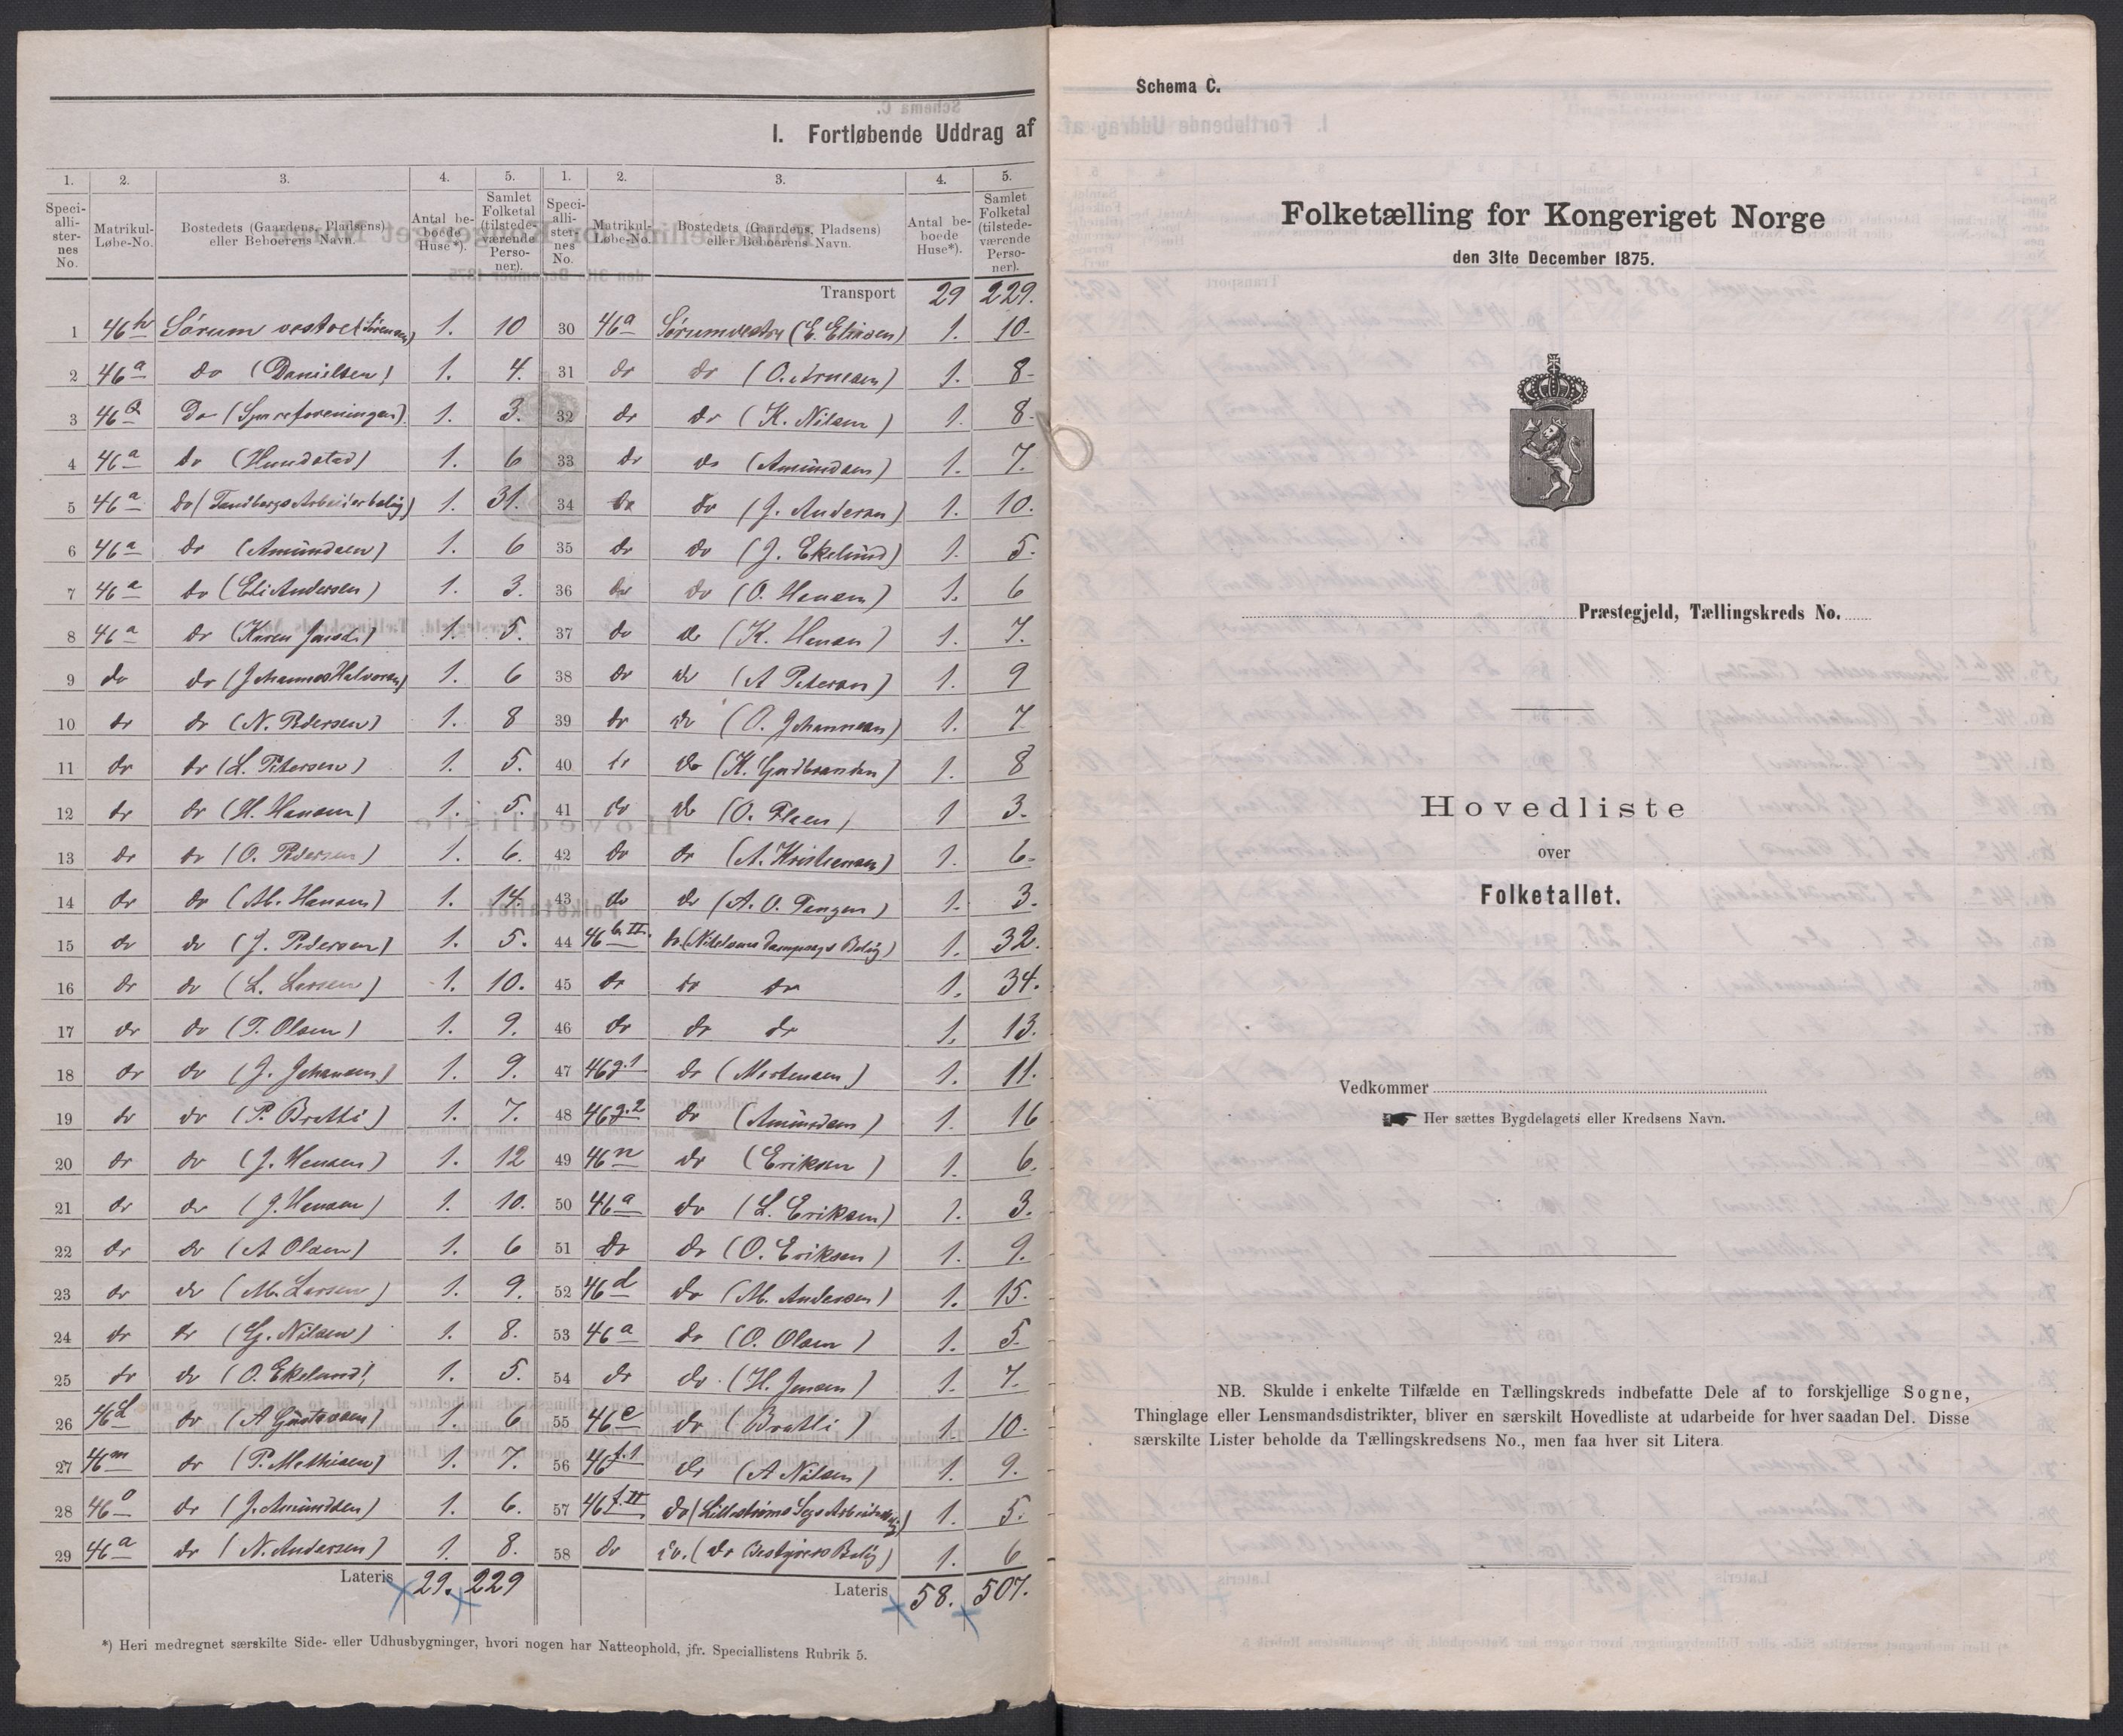 I. Fortløbende Uddrag af
1. 2. 3. 4. 5. 1. 2. 3. 4. 5.
Speci-alli-ster-nes No. Matrikul-Løbe-No. Bostedets (Gaardens, Pladsens) eller Beboerens Navn. Antal be-boede Huse*). Samlet Folketal (tilstede-værende Perso-ner). Speci-alli-ster-nes No. Matrikul-Løbe-No. Bostedets (Gaardens, Pladsens) eller Beboerens Navn. Antal be-boede Huse*). Samlet Folketal (tilstede-værende Perso-ner).
Transport 29 229.
1 Sørum vestre 1. 10
2 46a do (Danielsen) 1. 4.
3 46a Do (Sparreforeningen) 1. 3.
4 46a do (Hundstad) 1. 6
5 46a do (Tandbergs Arbeiderbolig) 1. 31.
6 46a do (Amundsen) 1. 6
7 46a do (Eli Andersen) 1. 3.
8 46a do (Karen 1. 5.
9 do do (Johannes Halvorsen) 1. 6
10 do do (N. Pedersen) 1. 8
11 do do (L. Petersen) 1. 5.
12 do do (H. Hansen) 1. 5.
13 do do (O. Pedersen) 1. 6.
14 do do (M. Hansen) 1. 14.
15 do do (J. Pedersen) 1. 5.
16 do do (L. Larsen) 1. 10.
17 do do (T. Olsen) 1. 9.
18 do do (J. Johansen) 1. 9.
19 do do (P. Brathi) 1. 7.
20 do do (J. Hansen) 1. 12
21 do do (J. Hansen) 1. 10.
22 do do (A Olsen) 1. 6
23 do do (M. Larsen) 1. 9.
24 do do (G. Nilsen) 1. 8.
25 do do (O. Ekelund) 1. 5.
26 46L do (A Gustavsen) 1. 6
27 46m do (P. Mathisen) 1. 7.
28 46o do (J. Amundsen) 1. 6.
29 46a do (N. Andersen) 1. 8.
Lateris 29. 229
30 46a Sørumvestre (E. Eliasen) 1. 10.
31 do do (O. Arnesen) 1. 8
32 do do (K. Nilsen) 1. 8
33 do do (Amundsen) 1. 7.
34 do do (J. Andersen) 1. 10.
35 do do (J. Ekelund) 1. 5.
36 do do (O. Hansen) 1. 6
37 do do (K. Hansen) 1. 7.
38 do do (A Petersen) 1. 9
39 do do (O. Johannesen) 1. 7
40 do do (K. Gudbrandsen) 1. 8
41 do do (O. 1 3.
42 do do (A. Kristiansen) 1. 6
43 do do (A. O. Tangen) 1. 3.
44 46b II. do (Nitelvens Dampsags Bolig) 1. 32.
45 do do do 1. 34.
46 do do do 1. 13.
47 46g.1 do (Mortensen) 1. 11.
48 46g.2 do (Amundsen) 1. 16
49 46n do (Eriksen) 1. 6.
50 46a do (L. Eriksen) 1. 3.
51 Do do (O. Eriksen) 1. 9.
52 46d do (M. Andersen) 1. 15.
53 46a do (O. Olsen) 1. 5.
54 do do (H. Jensen) 1. 7.
55 46e do (Brathi) 1. 10.
56 46f.1 do (A Nilsen) 1. 9.
57 46f.II do (Lillestrøms Sags Arbeiderbolig) 1. 5.
58 do do. (do Bestyrers Bolig) 1. 6
Lateris 58. 507.
*) Heri medregnet særskilte Side- eller Udhusbygninger, hvori nogen har Natteophold, jfr. Speciallistens Rubrik 5.
Schema C.
Folketælling for Kongeriget Norge
den 31te December 1875.
Præstegjeld, Tællingskreds No.
Hovedliste
over
Folketallet.
Vedkommer
Her sættes Bygdelagets eller Kredsens Navn.
NB. Skulde i enkelte Tilfælde en Tællingskreds indbefatte Dele af to forskjellige Sogne,
Thinglage eller Lensmandsdistrikter, bliver en særskilt Hovedliste at udarbeide for hver saadan Del. Disse
særskilte Lister beholde da Tællingskredsens No., men faa hver sit Litera.